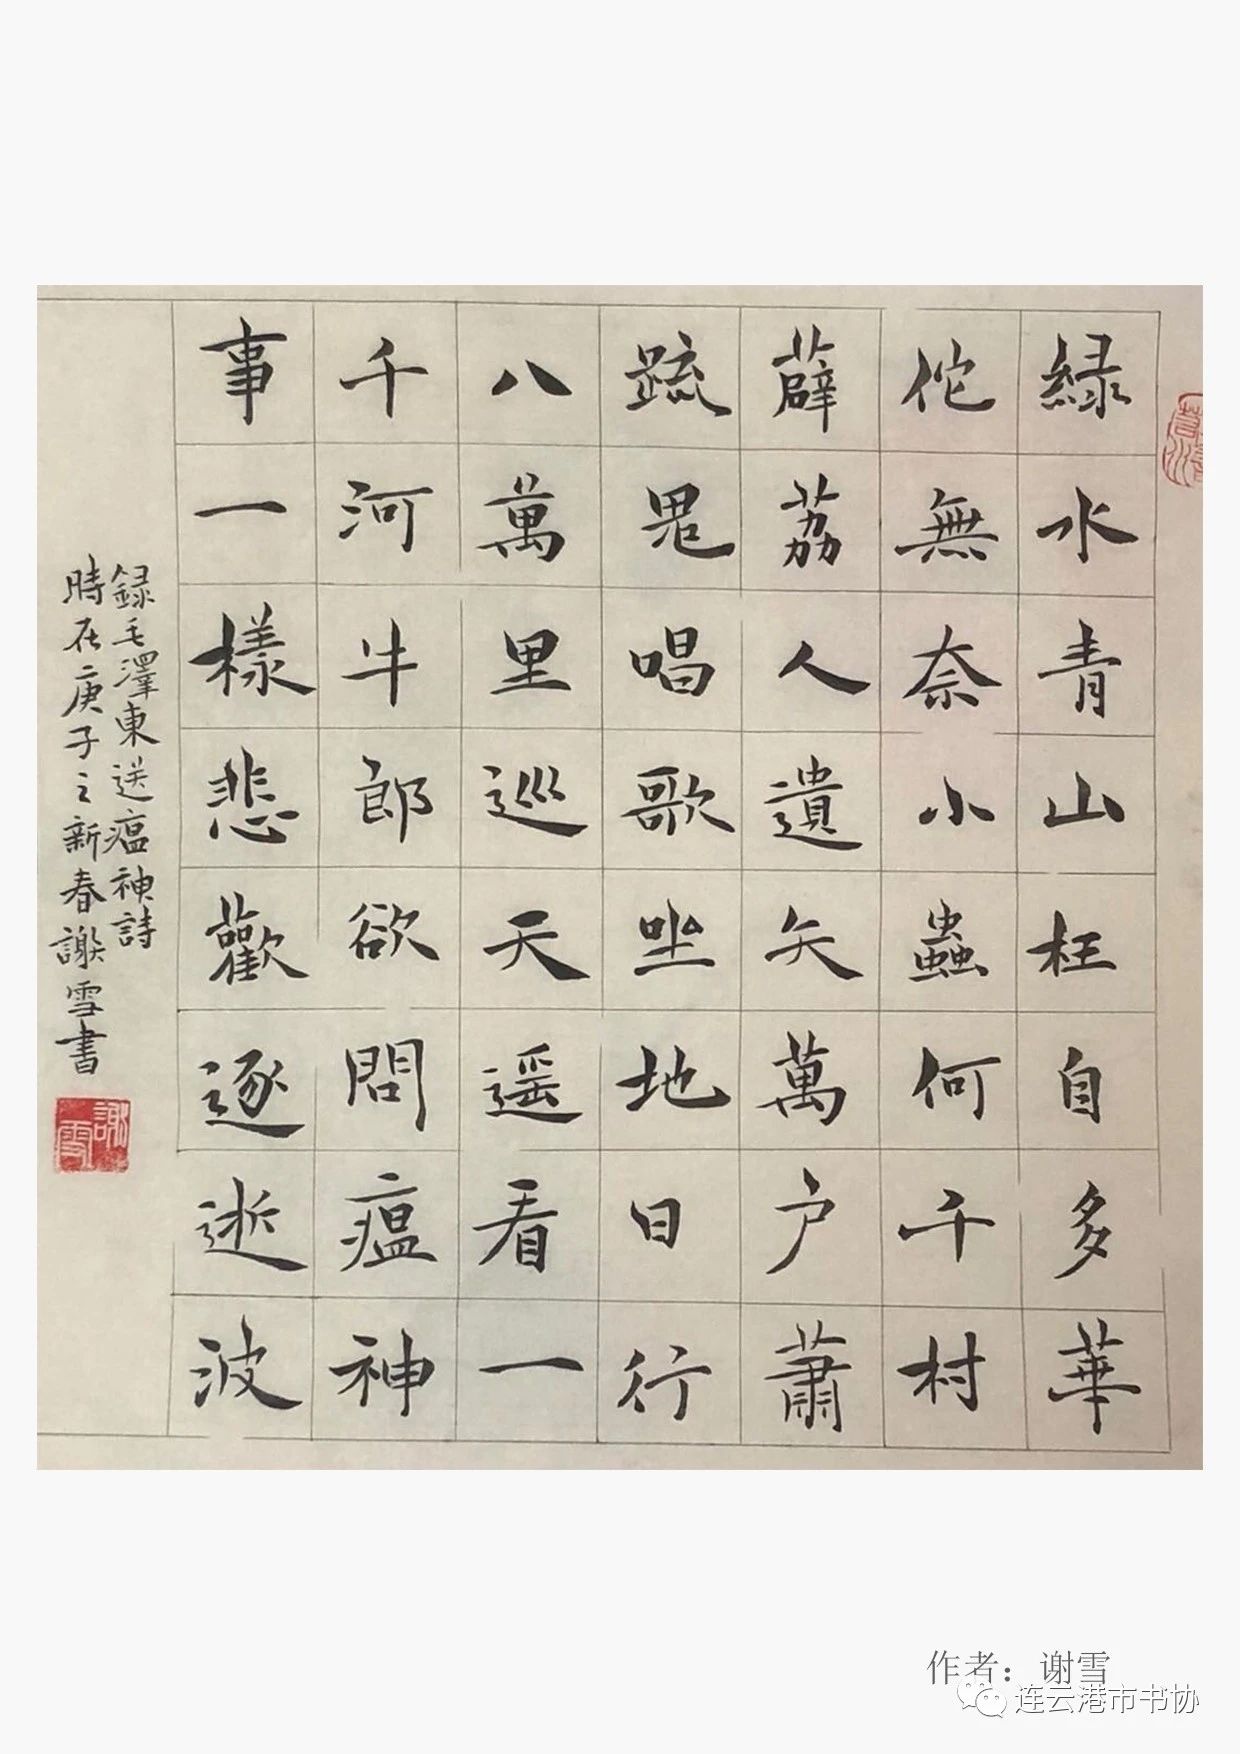 緑水青山枉自多華
佗無奈小蟲何千村
薜荔人遺矢萬户蕭
疏鬼唱歌坐地日行
八萬里巡天遥看一
千河牛郎欲問瘟神
事一樣悲歡逐逝波
録毛澤東送瘟神詩
時在庚子之新春謝雪書
謝雪
作者：谢雪
连云港市书协